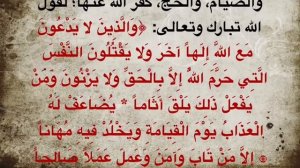 والصيام، والحج، كفر الله عنها؛ لقول
الله تبارك وتعالى: ﴿وَالَّذِينَ لَا يَدْعُونَ
مَعَ اللَّهِ إِلَهاً آخَرَ وَلَا يَقْتُلُونَ النَّفْسَ
الَّتِي حَرَّمَ اللَّهُ إِلَّا بِالْحَقِّ وَلَا يَزْنُونَ وَمَنْ
يَفْعَلْ ذَلِكَ يَلْقَ أَثَاماً * يُضَاعَفْ لَهُ
الْعَذَابُ يَوْمَ الْقِيَامَةِ وَيَخْلُدْ فِيهِ مُهَاناً
* إِلَّا مَنْ تَابَ وَآمَنَ وَعَمِلَ عَمَلاً صَالِحاً